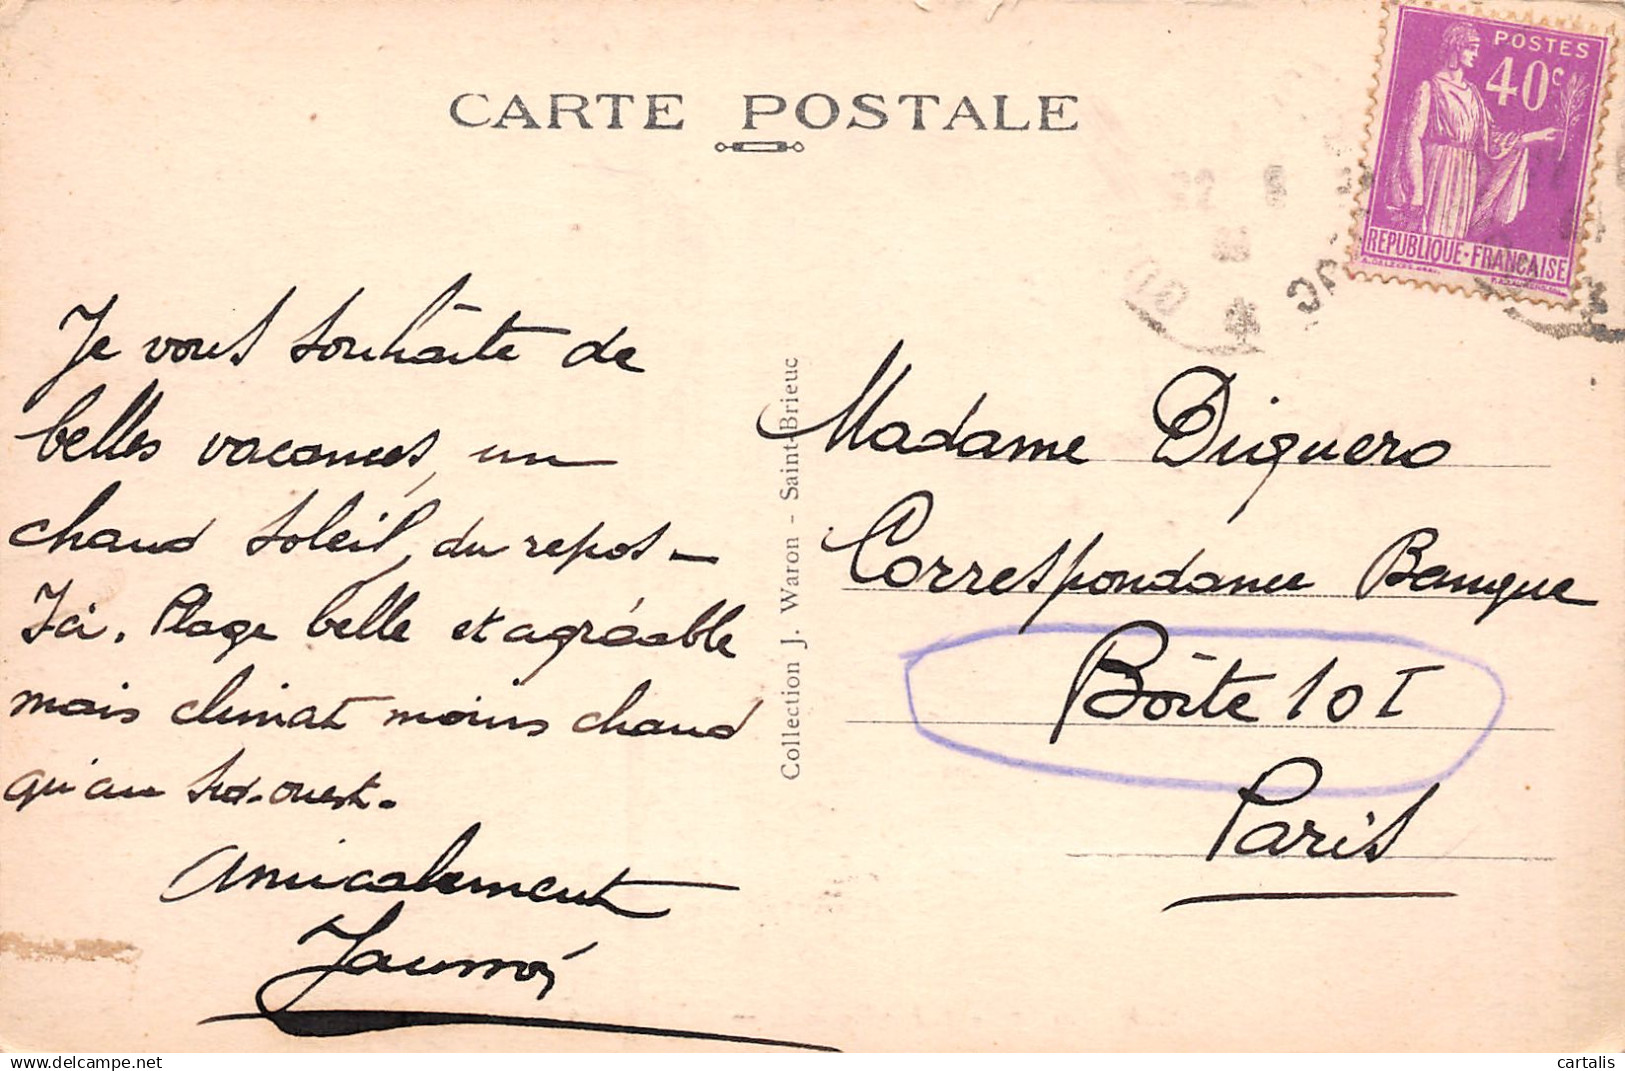 CARTE POSTALE
POSTES
40c
REPUBLIQUE-FRANCAISE
Je vous souhaite de
belles vacances, un
chaud soleil, du repos -
Ici. Plage belle et agréable
mais climat moins chaud
qu'au sud-ouest.
Amicalement
Collection J. Waron - Saint-Brieuc
Madame Diguero
Correspondance Banque
Boîte 101
Paris
cartalis